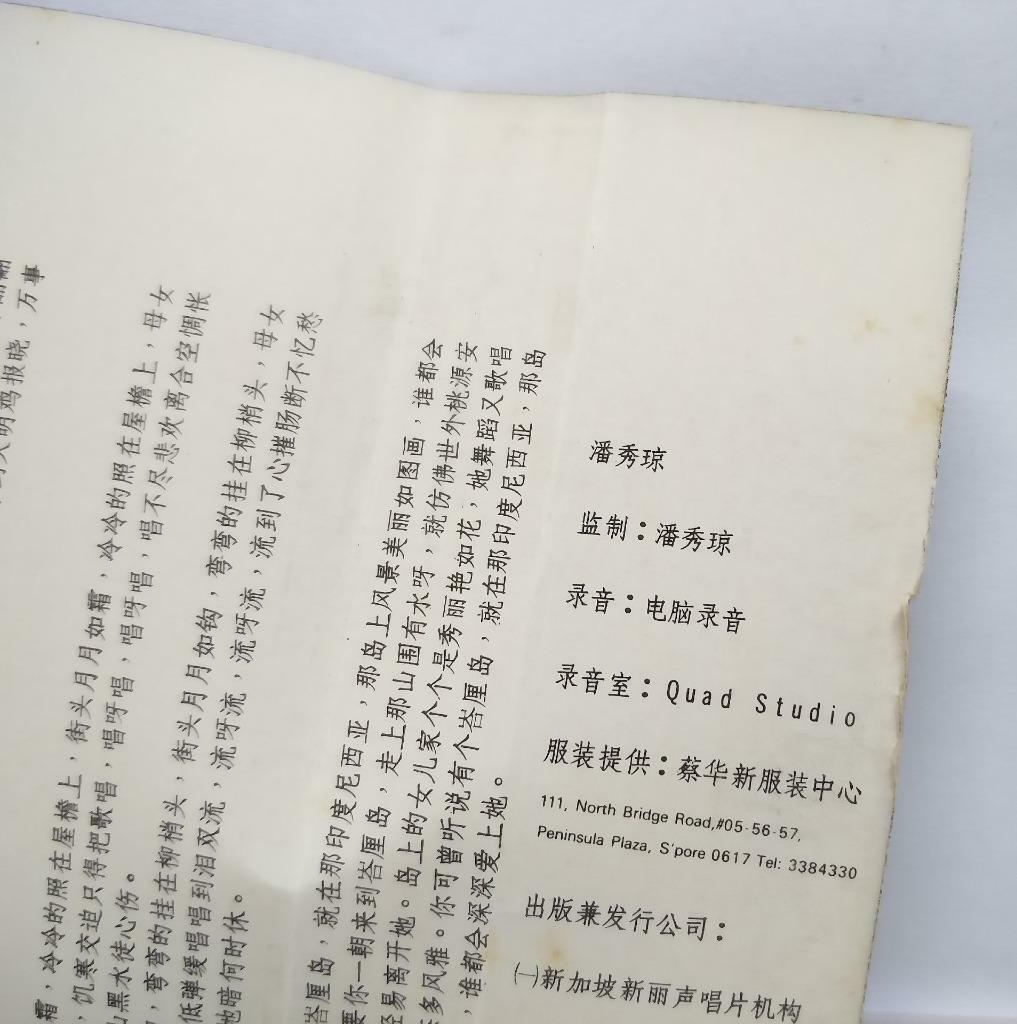 天明鸡报晓，万事
霜，冷冷的照在屋檐上，街头月月如霜，冷冷的照在屋檐上，母女
，饥寒交迫只得把歌唱，唱呀唱，唱呀唱，唱不尽悲欢离合空惆怅
山黑水徒心伤。
，弯弯的挂在柳梢头，街头月月如钩，弯弯的挂在柳梢头，母女
低弹缓唱唱到泪双流，流呀流，流呀流，流到了心摧肠断不忆愁
她暗何时休。
峇厘岛，就在那印度尼西亚，那岛上风景美丽如图画，谁都会
要你一朝来到峇厘岛，走上那山围有水呀，就仿佛世外桃源安
轻易离开她。岛上的女儿家个个是秀丽艳如花，她舞蹈又歌唱
多风雅。你可曾听说有个峇厘岛，就在那印度尼西亚，那岛
，谁都会深深爱上她。
潘秀琼
监制：潘秀琼
录音：电脑录音
录音室：Quad Studio
服装提供：蔡华新服装中心
111, North Bridge Road,#05-56-57,
Peninsula Plaza, S'pore 0617 Tel: 3384330
出版兼发行公司：
㈠新加坡新丽声唱片机构